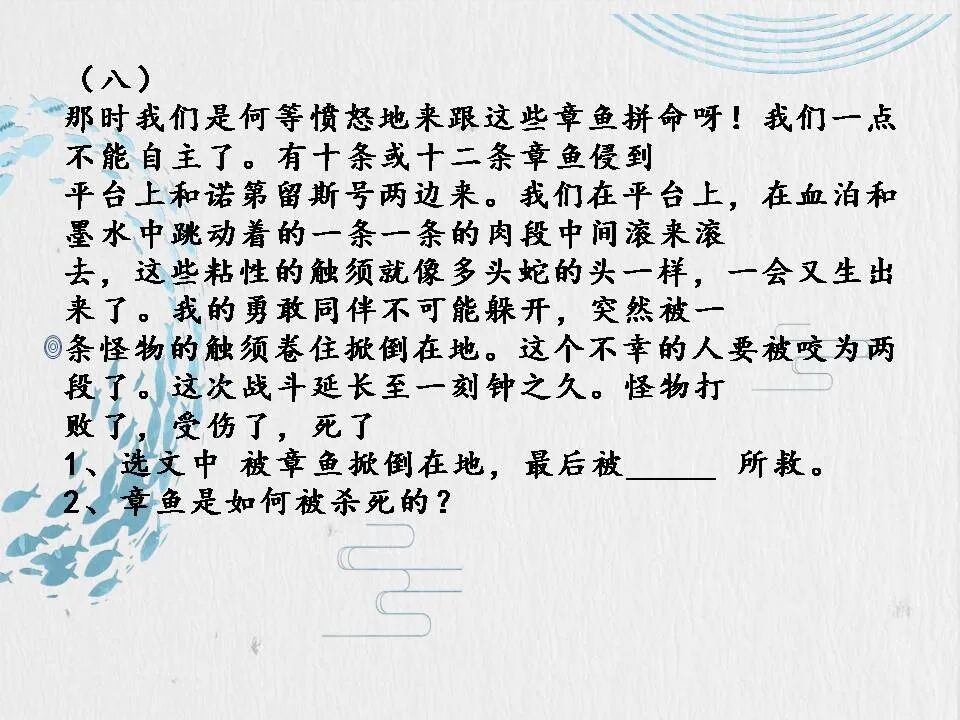 （八）
那时我们是何等愤怒地来跟这些章鱼拼命呀！我们一点
不能自主了。有十条或十二条章鱼侵到
平台上和诺第留斯号两边来。我们在平台上，在血泊和
墨水中跳动着的一条一条的肉段中间滚来滚
去，这些粘性的触须就像多头蛇的头一样，一会又生出
来了。我的勇敢同伴不可能躲开，突然被一
条怪物的触须卷住掀倒在地。这个不幸的人要被咬为两
段了。这次战斗延长至一刻钟之久。怪物打
败了，受伤了，死了
1、选文中 被章鱼掀倒在地，最后被_____ 所救。
2、章鱼是如何被杀死的？